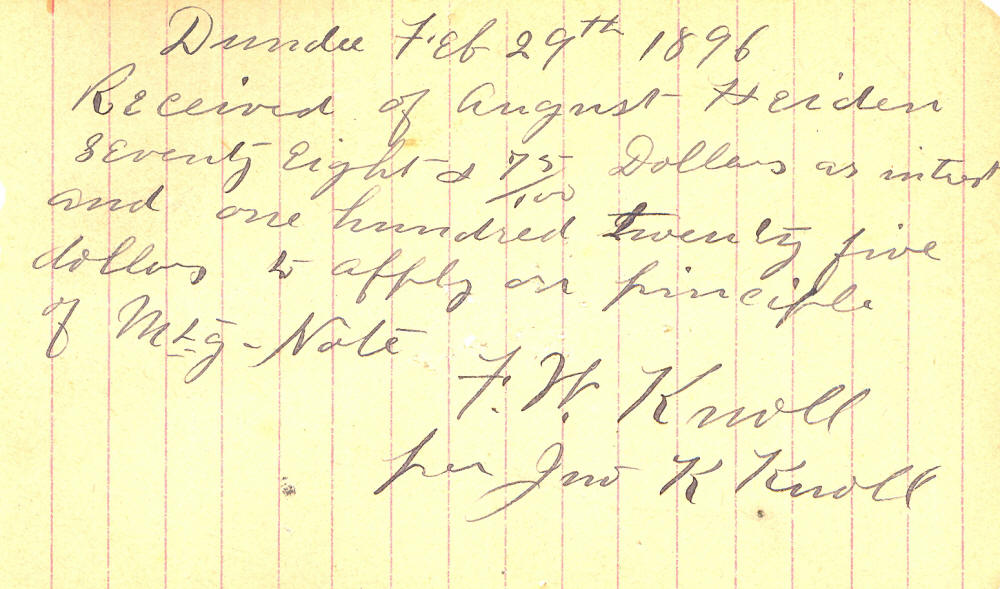 Dundee Feb 29th 1896
Received of August Heiden
Seventy Eight & 75/100 Dollars as intrest
and one hundred twenty five
dollars to apply on principle
of Mtg-Note
F. W. Knoll
per Jno K Knoll